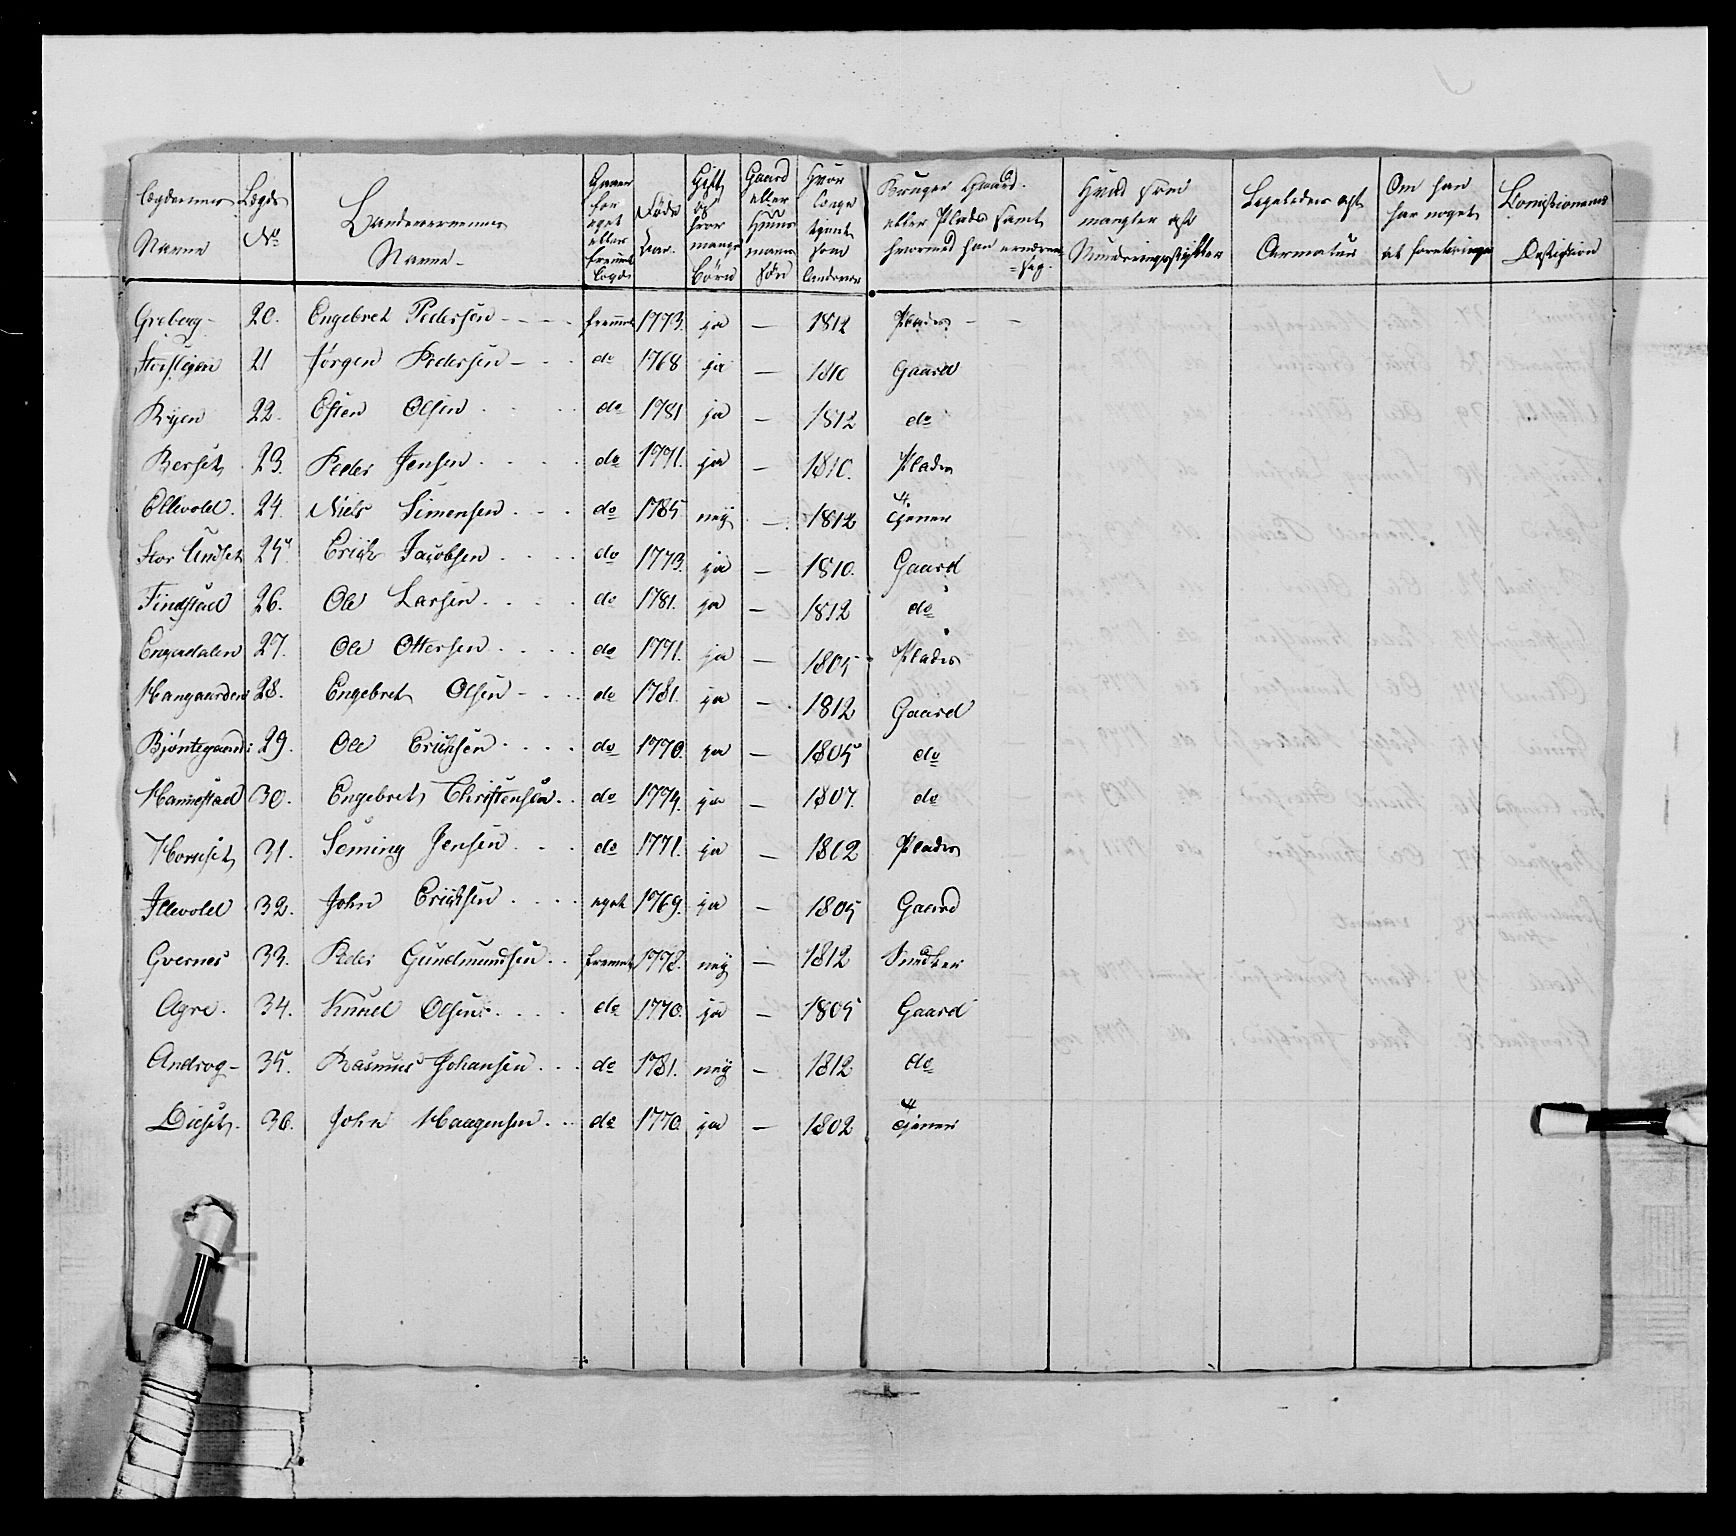 Lægdernes Navne | Lægds No | Landeværnernes Navne | Gaaer for eget eller fremmed Lægd | Føds Aar. | Gift og hvor mange Børn | Gaard eller Huusmands Søn | Hvor længe tjent som Landeværn | Bruger Gaard eller Plads samt hvormed han ernærer sig. | Hvad som mangler af Munderingsstykker | Ligeledes af Armatur | Om han har noget at forebringe | Comissionens Desission
Greberg - | 20. | Engebret Pedersen - - - | fremmd | 1773. | ja | — | 1812 | Plads - -
Storsteien | 21 | Jørgen Pedersen - - - | do | 1768 | ja | — | 1810 | Gaard
Ryen | 22. | Esten Olsen . . . | do | 1781 | ja | — | 1812 | do
Berset | 23. | Peder Jensen . . . | do | 1771. | ja | — | 1810. | Plads
Ellevold. | 24. | Niels Simensen . . . | do | 1785 | neij | — | 1812 | Tjener
Stor Undset | 25. | Erich Jacobsen . . . . | do | 1773. | ja | — | 1810. | Gaard
Findstad | 26. | Ole Larsen . . . . | do | 1781. | ja | — | 1812 | do
Engadalen | 27. | Ole Ottersen . . . . | do | 1771. | ja | — | 1805 | Plads
Hangaarden | 28. | Engebret Olsen - . . . | do | 1781. | ja | — | 1812 | Gaard
Bjøntegaard: | 29. | Ole Erichsen . . . . | do | 1770. | ja | — | 1805 | do
Hannestad | 30. | Engebret Christensen . . | do | 1774. | ja | — | 1807. | do
Hornset | 31. | Seming Jensen . . . | do | 1771. | ja | — | 1802 | Plads
Illevold | 32. | John Erichsen . . . . | eget | 1769. | ja | — | 1805 | Gaard
Gvernes | 33. | Peder Gundmundsen . . | fremmd | 1778. | neij | — | 1812 | Snedker
Agre. | 34. | Knud Olsen . . . . | do | 1770. | ja | — | 1805 | Gaard
Androg - | 35. | Rasmus Johansen . . . | do | 1781. | neij | — | 1812 | do
Dieset. | 36. | John Haagensen . . . | do | 1770 | ja | — | 1802 | Tjener